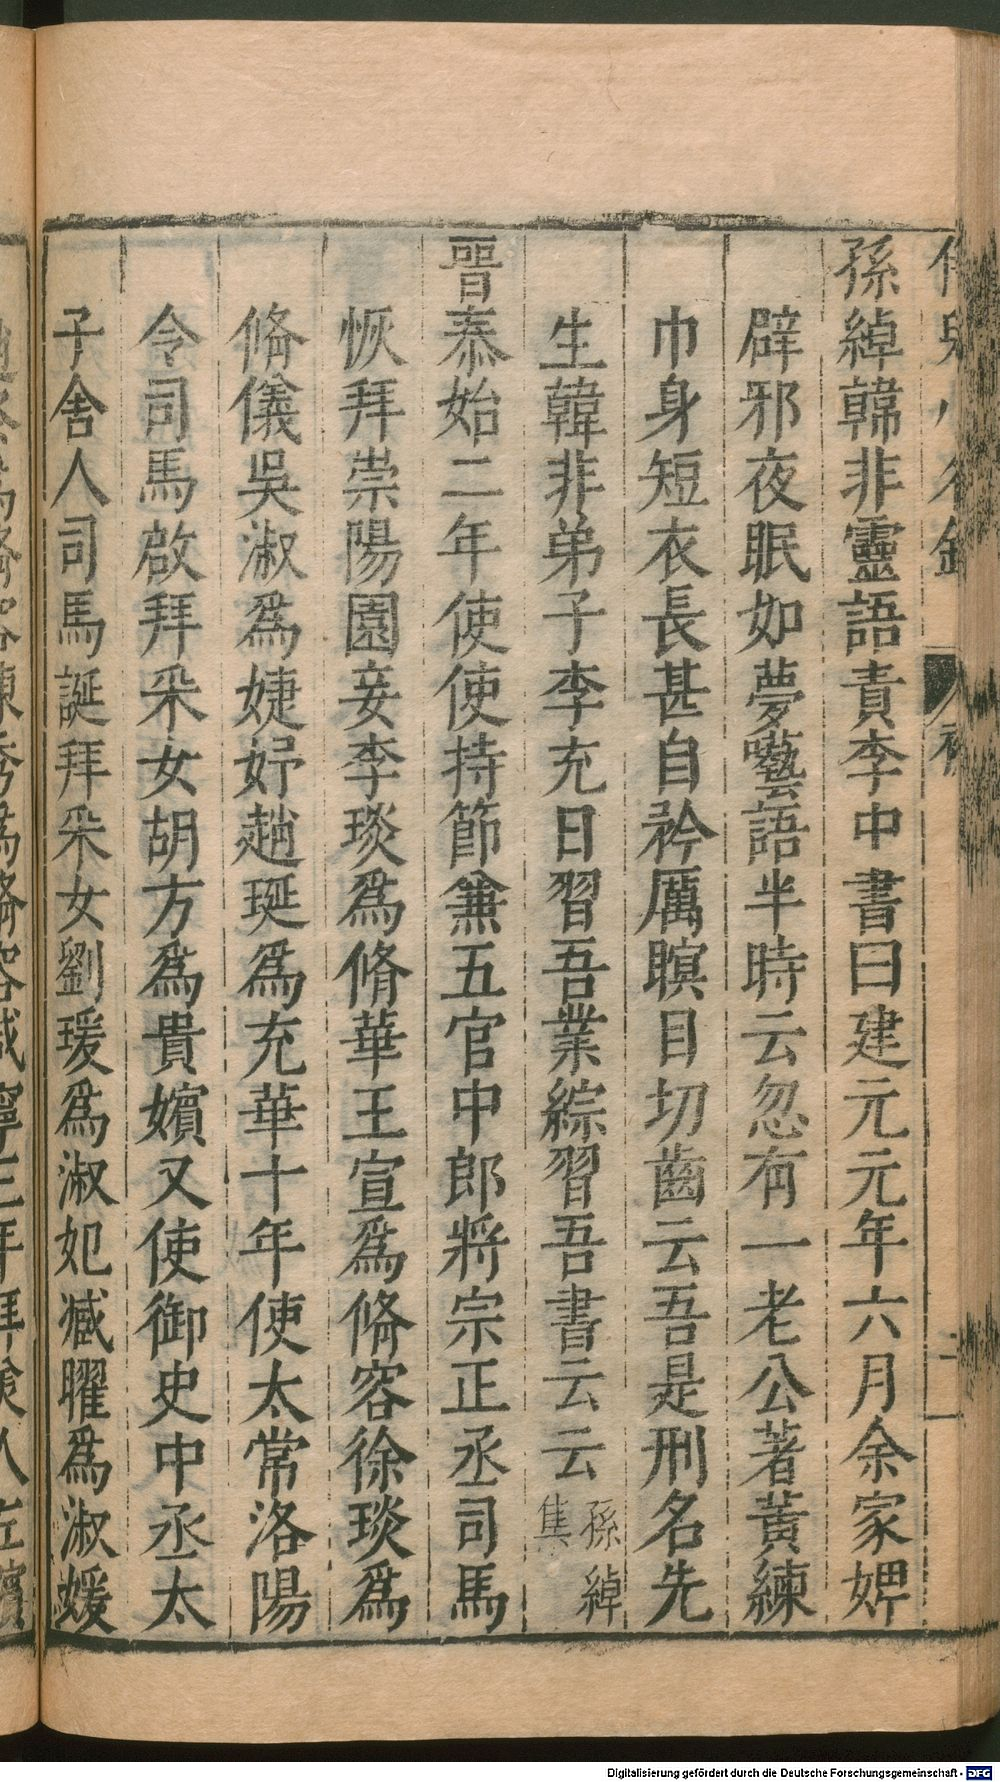 孫綽韓非靈語責李中書曰建元元年六月余家婢
辟邪夜眠如夢囈語半時云忽有一老公著黃練
巾身短衣長甚自矜厲瞑目切齒云吾是刑名先
生韓非弟子李充日習吾業綜習吾書云云孫綽集
晉泰始二年使使持節兼五官中郎將宗正丞司馬
恢拜崇陽園妾李琰爲脩華王宣爲脩容徐琰爲
脩儀吳淑爲婕妤趙珽爲充華十年使太常洛陽
令司馬啟拜采女胡方爲貴嬪又使御史中丞太
子舍人司馬誕拜采女劉瑗爲淑妃臧曜爲淑媛
Digitalisierung gefördert durch die Deutsche Forschungsgemeinschaft - DFG